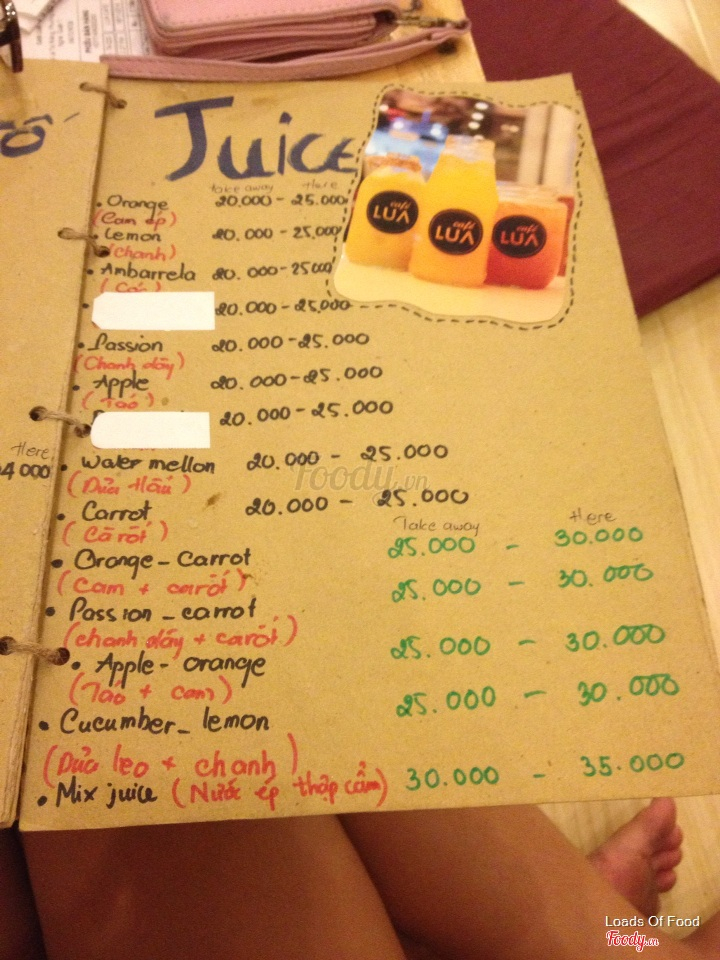 Tố
Juice
Take away Here
• Orange 20.000 - 25.000
(Cam ép)
• Lemon 20.000 - 25.000
(chanh)
• Ambarrela 20.000 - 25000
(Cóc)
• 20.000 - 25.000
• Passion 20.000 - 25.000
(Chanh dây)
• Apple 20.000 - 25.000
(Táo)
• 20.000 - 25.000
• Water mellon 20.000 - 25.000
(Dưa Hấu)
• Carrot 20.000 - 25.000
(Cà rốt)
Take away Here
• Orange - Carrot 25.000 - 30.000
(Cam + carốt)
• Passion - carrot 25.000 - 30.000
(chanh dây + carốt)
• Apple - orange 25.000 - 30.000
(Táo + cam)
• Cucumber - lemon 25.000 - 30.000
(Dưa leo + chanh)
• Mix juice (Nước ép thập cẩm) 30.000 - 35.000
café LUA
café LUA
café LUA
Here
4000
Foody.vn
Loads Of Food
Foody.vn